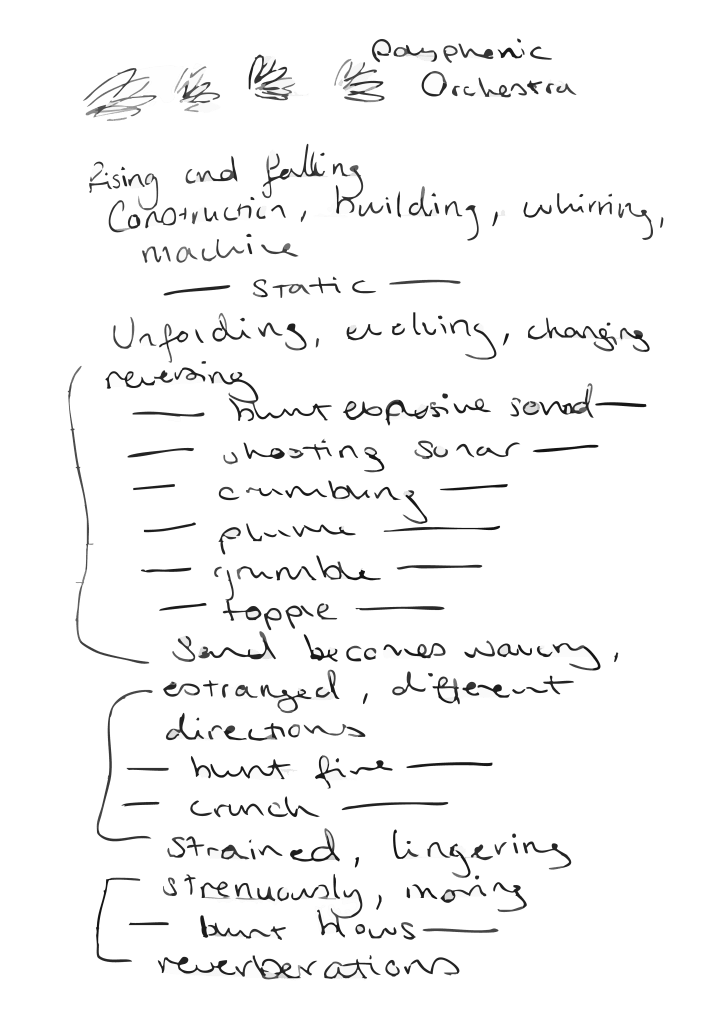 Polyphonic
Orchestra
Rising and falling
Construction, building, whirring,
machine
— static —
Unfolding, evolving, changing
reversing
— blunt explosive sound —
— shooting sonar —
— crumbling —
— plume —
— grumble —
— topple —
Sound becomes wavery,
estranged, different
directions
— blunt fire —
— crunch —
strained, lingering
strenuously, moving
— blunt blows —
reverberations